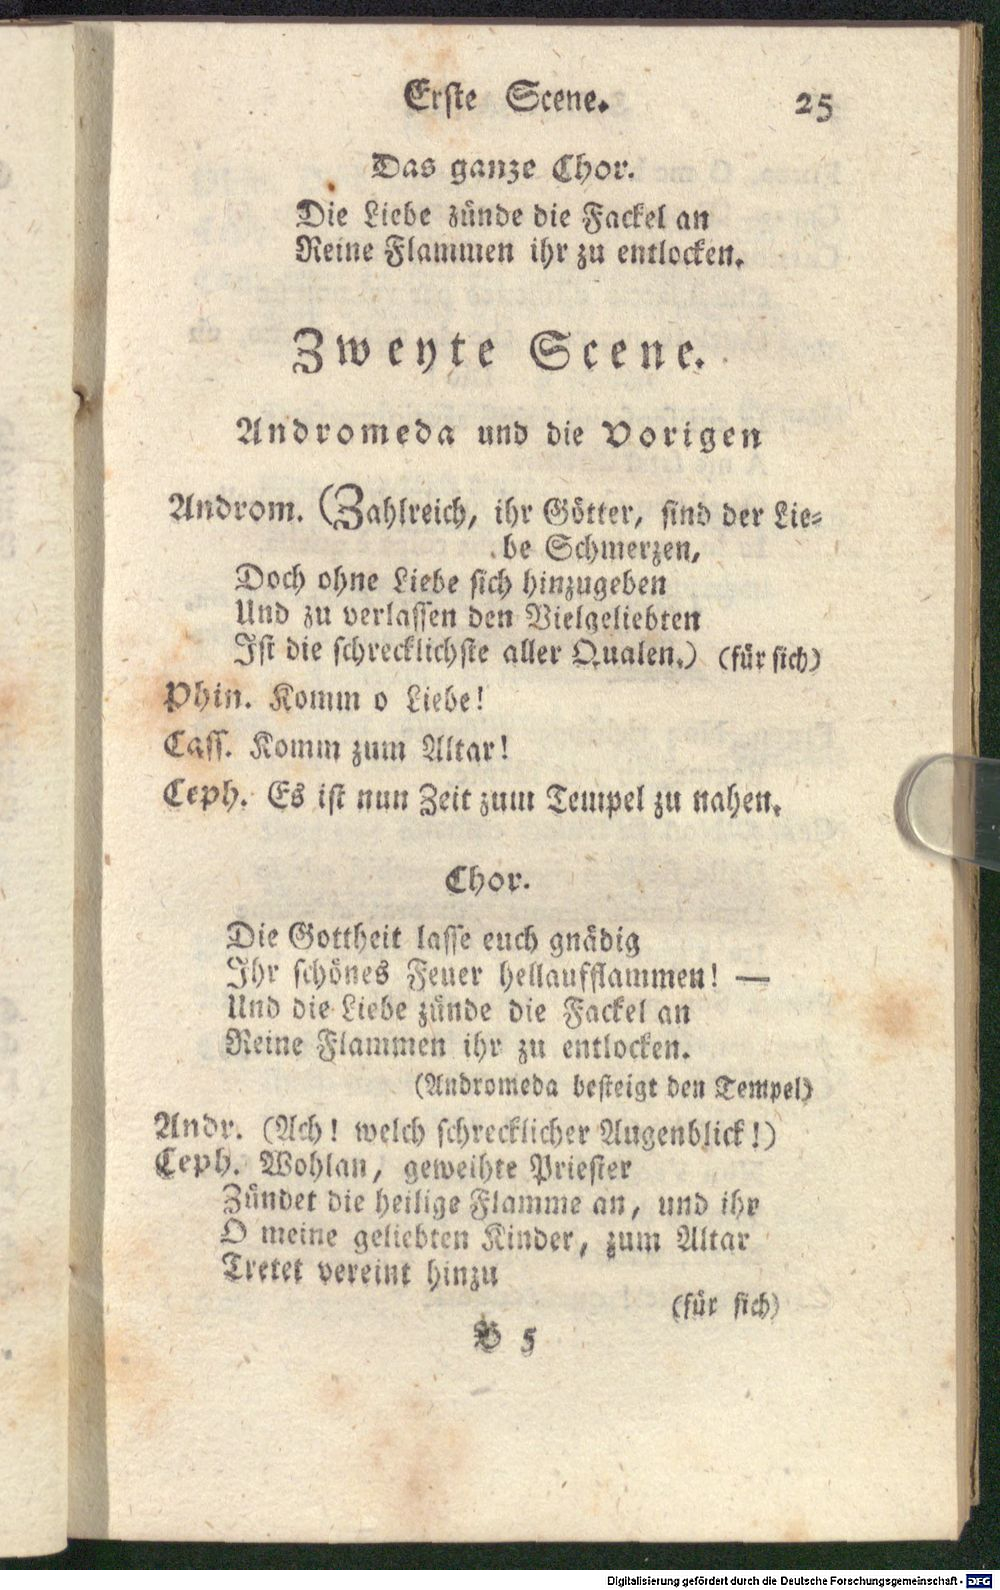 Erste Scene. 25
Das ganze Chor.
Die Liebe zünde die Fackel an
Reine Flammen ihr zu entlocken.
Zweyte Scene.
Andromeda und die Vorigen
Androm. (Zahlreich, ihr Götter, sind der Lie-
be Schmerzen,
Doch ohne Liebe sich hinzugeben
Und zu verlassen den Vielgeliebten
Ist die schrecklichste aller Qualen.) (für sich)
Phin. Komm o Liebe!
Cass. Komm zum Altar!
Ceph. Es ist nun Zeit zum Tempel zu nahen.
Chor.
Die Gottheit lasse euch gnädig
Ihr schönes Feuer hellaufflammen! —
Und die Liebe zünde die Fackel an
Reine Flammen ihr zu entlocken.
(Andromeda besteigt den Tempel)
Andr. (Ach! welch schrecklicher Augenblick!)
Ceph. Wohlan, geweihte Priester
Zündet die heilige Flamme an, und ihr
O meine geliebten Kinder, zum Altar
Tretet vereint hinzu
(für sich)
B 5
Digitalisierung gefördert durch die Deutsche Forschungsgemeinschaft - DFG